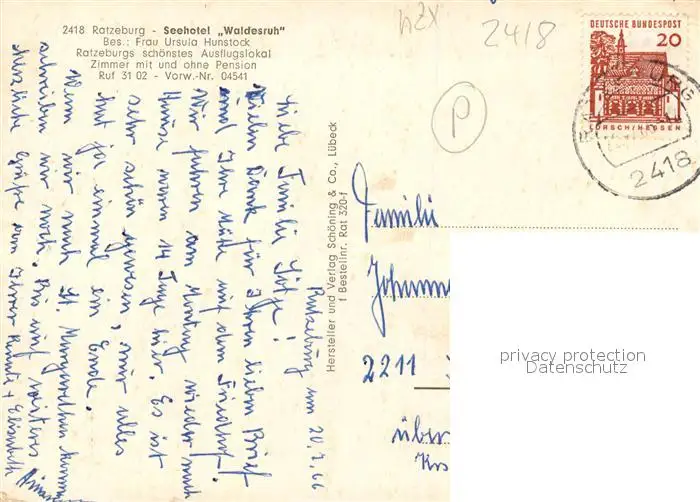 2418 Ratzeburg - Seehotel "Waldesruh"
Bes.: Frau Ursula Hunstock
Ratzeburgs schönstes Ausflugslokal
Zimmer mit und ohne Pension
Ruf 31 02 - Vorw.-Nr. 04541
2418
DEUTSCHE BUNDESPOST
20
LORSCH/HESSEN
2418
P
Hersteller und Verlag Schöning & Co., Lübeck
f Bestellnr. Rat 320-f
Ratzeburg, am 20.7.66
Liebe Familie
Vielen Dank für Ihren lieben Brief
und Ihre Mühe auf dem Friedhof!
Wir fuhren am Montag wieder nach
Hause, waren 14 Tage hier. Es ist
sehr schön gewesen, nur alles
hat ja einmal ein Ende.
Wenn wir nach St. Margarethen kommen
schreiben wir noch. Bis auf weiteres
herzliche Grüße von Ihrer
Familie
2211
über
privacy protection
Datenschutz